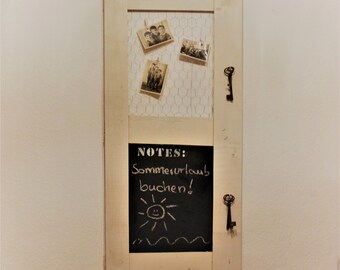 NOTES:
Sommerurlaub
buchen!